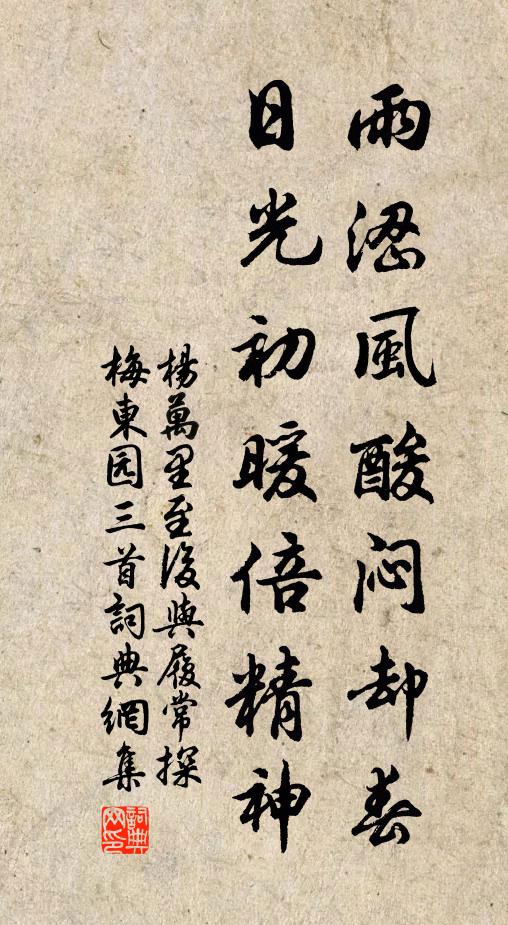 雨涩風酸闷却春
日光初暖倍精神
楊萬里至後與履常探
梅東园三首詞典網集
詞典网印